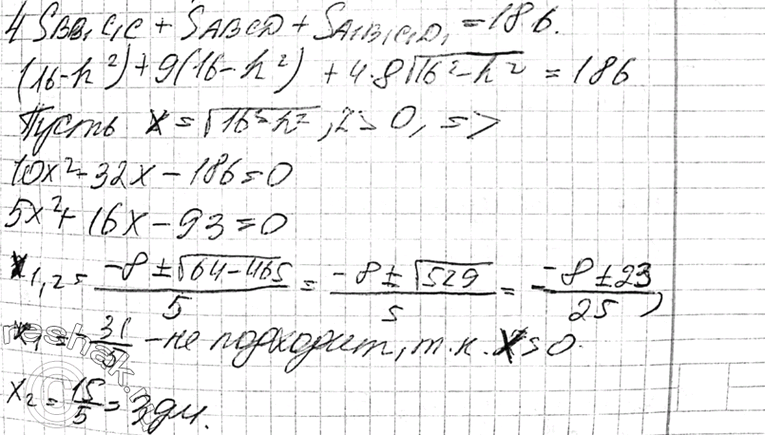 4 S_{BB₁C₁C} + S_{ABCD} + S_{A₁B₁C₁D₁} = 186.
(16-h²) + 9(16-h²) + 4·8√(16²-h²) = 186
Пусть x = √(16²-h²), x > 0, =>
10x² + 32x - 186 = 0
5x² + 16x - 93 = 0
x₁,₂ = (-8 ± √(64-465))/5 = (-8 ± √529)/5 = (-8 ± 23)/25,
x₁ = -31/5 - не подходит, т.к. x > 0.
x₂ = 15/5 = 3 дм.
reshak.ru